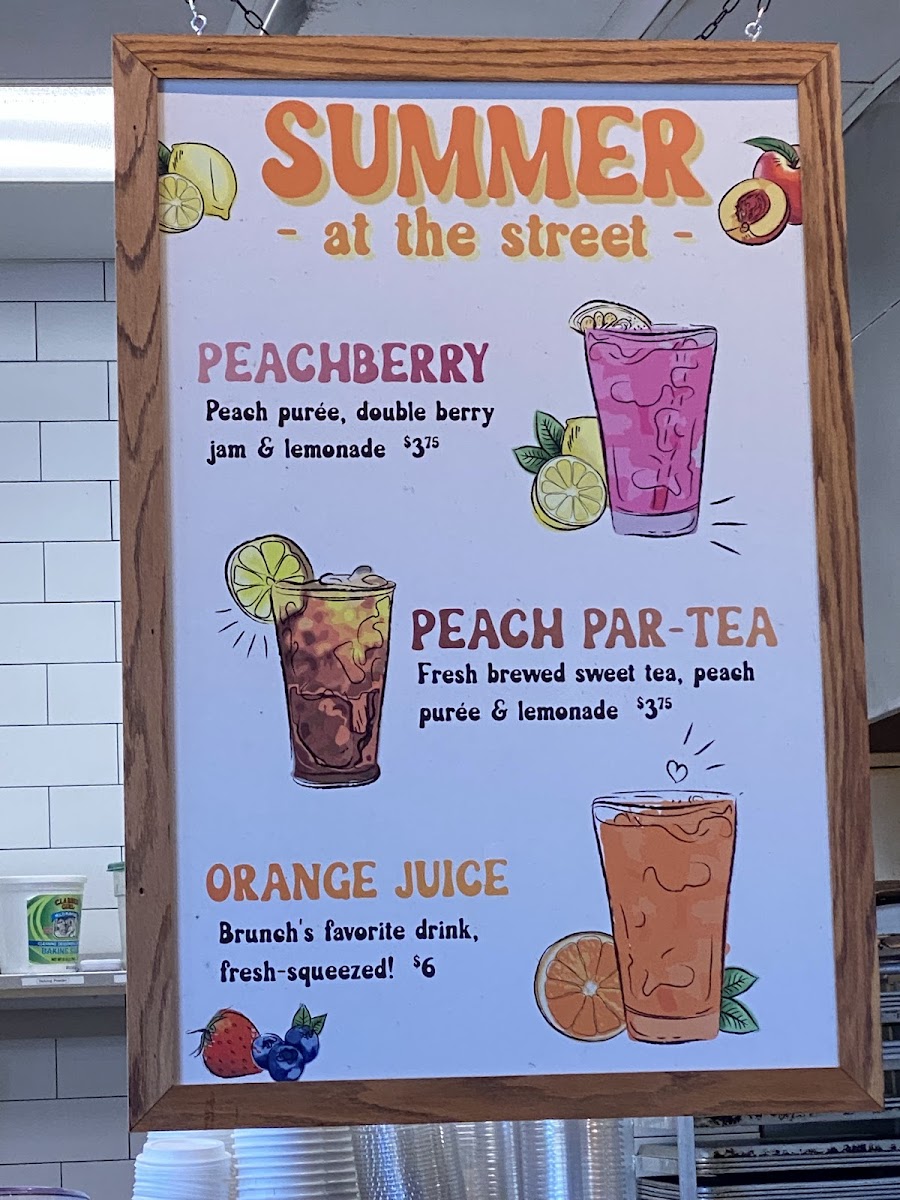 SUMMER
- at the street -
PEACHBERRY
Peach purée, double berry
jam & lemonade $375
PEACH PAR-TEA
Fresh brewed sweet tea, peach
purée & lemonade $375
ORANGE JUICE
Brunch's favorite drink,
fresh-squeezed! $6
CLABBER
GIRL
BAKING